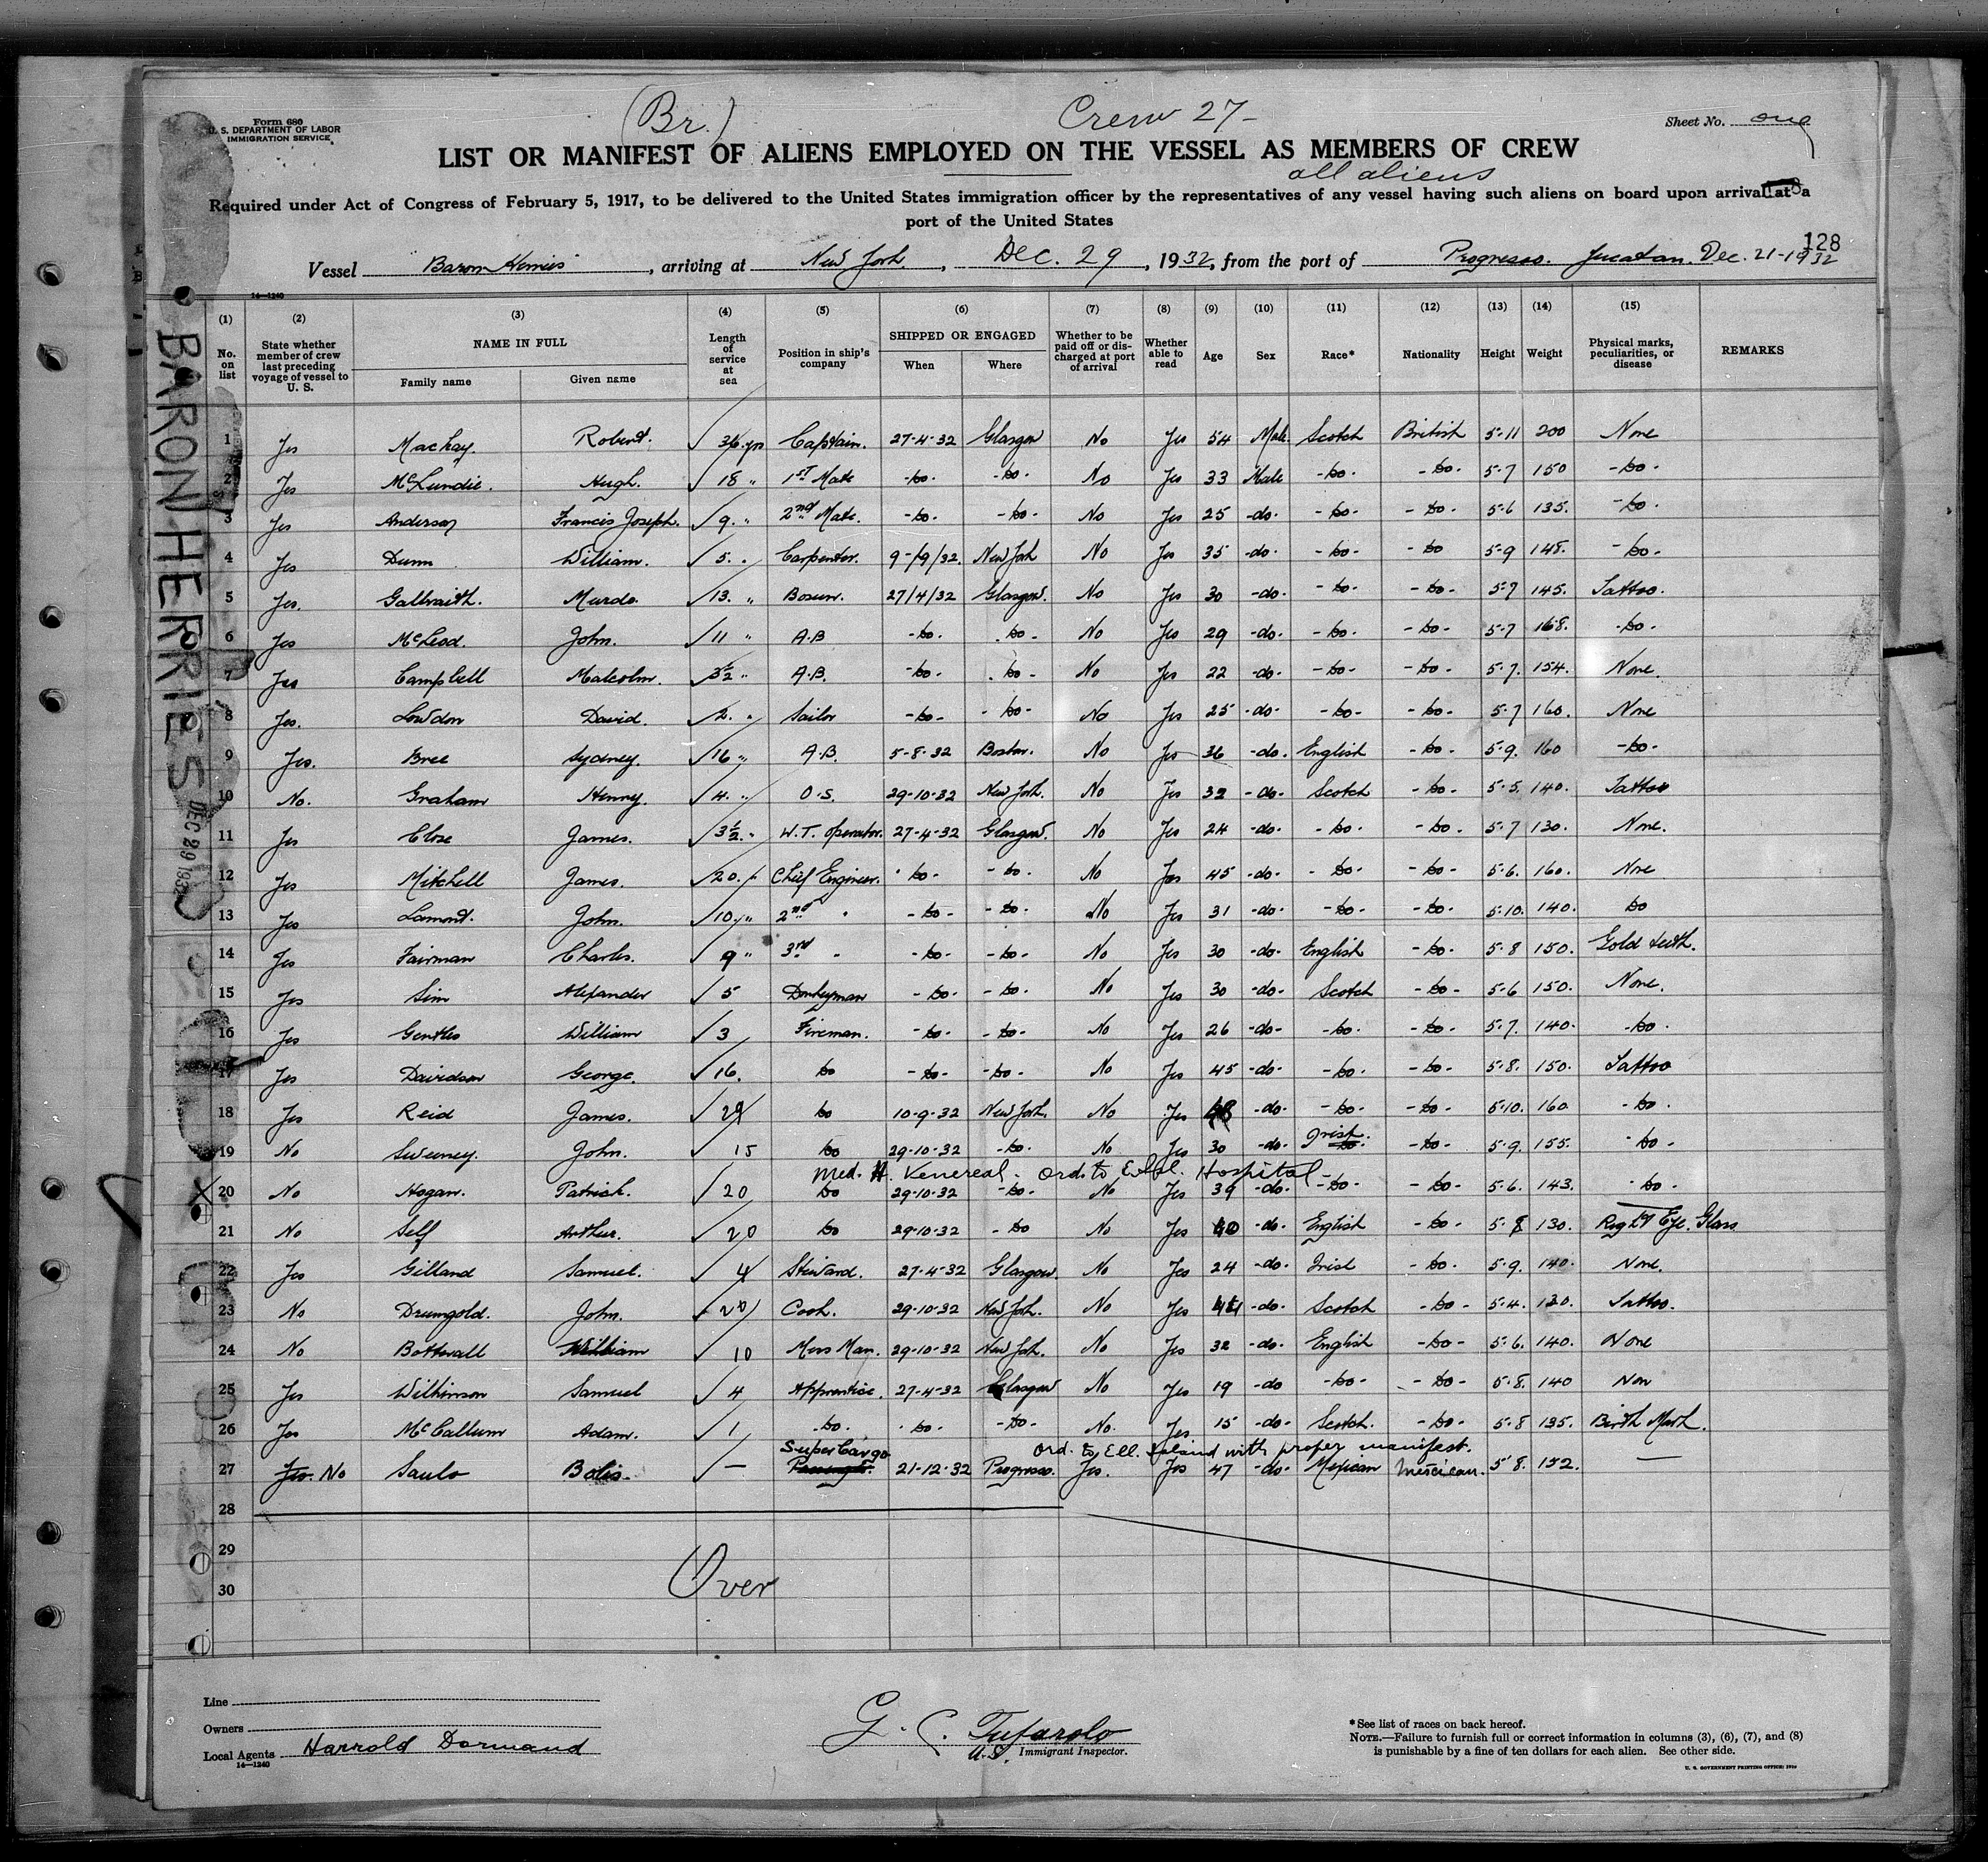 (Br.)
Crew 27-
Form 680
U. S. DEPARTMENT OF LABOR
IMMIGRATION SERVICE
Sheet No. one
LIST OR MANIFEST OF ALIENS EMPLOYED ON THE VESSEL AS MEMBERS OF CREW
all aliens
Required under Act of Congress of February 5, 1917, to be delivered to the United States immigration officer by the representatives of any vessel having such aliens on board upon arrival at a
port of the United States
128
Vessel Baron Herries, arriving at New York, Dec. 29, 1932, from the port of Progreso. Yucatan. Dec. 21-1932
14—1240
BARON HERRIES DEC 29 1932
(1) No. on list
(2) State whether member of crew last preceding voyage of vessel to U. S.
(3) NAME IN FULL Family name Given name
(4) Length of service at sea
(5) Position in ship's company
(6) SHIPPED OR ENGAGED When Where
(7) Whether to be paid off or discharged at port of arrival
(8) Whether able to read
(9) Age
(10) Sex
(11) Race*
(12) Nationality
(13) Height
(14) Weight
(15) Physical marks, peculiarities, or disease
REMARKS
1 Yes Mackay. Robert. 36 yrs Captain. 27-4-32 Glasgow No Yes 54 Male Scotch British 5-11 200 None
2 Yes McLundie. Hugh. 18 " 1st Mate -do- -do- No Yes 33 Male -do- -do- 5-7 150 -do-
3 Yes Anderson Francis Joseph. 9. " 2nd Mate. -do- -do- No Yes 25 -do- -do- -do- 5-6 135. -do-
4 Yes Dunn William. 5. " Carpenter. 9-/9/32. New York No Yes 35 -do- -do- -do 5-9 148. -do-
5 Yes. Galbraith. Murdo. 13. " Bosun. 27/4/32 Glasgow. No Yes 30 -do- -do- -do- 5-7 145. Tattoo.
6 Yes McLeod. John. 11 " A.B -do- -do- No Yes 29 -do- -do- -do- 5-7 168. -do-
7 Yes Campbell Malcolm. 3½ " A.B. -do- -do- No Yes 22 -do- -do- -do- 5-7. 154. None.
8 Yes. Lowdon David. 2. " Sailor -do- -do- No Yes 25 -do- -do- -do- 5-7 160. None
9 Yes. Bree Sydney. 16 " A.B. 5-8-32 Boston. No Yes 36 -do- English -do- 5-9. 160 -do-
10 No. Graham Henry. 4. " O.S. 29-10-32 New York. No Yes 32 -do- Scotch -do- 5-5. 140. Tattoo
11 Yes Close James. 3½. " W.T. Operator. 27-4-32 Glasgow. No Yes 24 -do- -do- -do- 5-7 130. None.
12 Yes Mitchell James. 20. " Chief Engineer. -do- -do- No Yes 45 -do- -do- -do- 5-6. 160. None
13 Yes Lamont. John. 10. " 2nd " -do- -do- No Yes 31 -do- -do- -do- 5-10. 140. do
14 Yes Fairman Charles. 9 " 3rd " -do- -do- No Yes 30 -do- English -do- 5-8 150. Gold teeth.
15 Yes Sim Alexander 5 Donkeyman -do- -do- No Yes 30 -do- Scotch -do- 5-6 150. None.
16 Yes Gentles William 3 Fireman. -do- -do- No Yes 26 -do- -do- -do- 5-7. 140. -do-
17 Yes Davidson George. 16. do -do- -do- No Yes 45 -do- -do- -do- 5-8. 150. Tattoo
18 Yes Reid James. do 10-9-32 New York. No Yes -do- -do- -do- 5-10. 160. -do-
19 No Sweeney. John. 15 do 29-10-32 -do- No Yes 30 -do- Irish. -do- 5-9. 155. -do-
Med. Venereal. ord. to Hospital
20 No Hogan. Patrick. 20 do 29-10-32 -do- No Yes 39 -do- -do- -do- 5-6. 143. -do-
21 No Self Arthur. 20 do 29-10-32 -do No Yes 40 -do- English -do- 5-8 130. Right Eye. Glass
22 Yes Gilland Samuel. 4 Steward. 27-4-32 Glasgow. No Yes 24 -do- Irish -do- 5-9. 140. None.
23 No Drumgold. John. 20 Cook. 29-10-32 New York. No Yes -do- Scotch -do- 5-4. 130. Tattoo.
24 No Botterall William 10 Mess Man. 29-10-32 New York. No Yes 32 -do- English -do- 5-6. 140. None
25 Yes Wilkinson Samuel 4 Apprentice. 27-4-32 Glasgow No Yes 19 -do -do- -do- 5-8. 140 Non
26 Yes McCallum Adam. 1 do. -do- -do- No. Yes 15 -do- Scotch. -do- 5-8 135. Birth Mark.
Super Cargo ord. to Ell. Island with proper manifest.
27 Yes. No Saulo Bolis. — Passenger. 21-12-32 Progreso. Yes. Yes 47 -do- Mexican Mexican. 5-8. 152. —
28
29
30
Over
Line
Owners
Local Agents Harrold Dormand
14—1240
G. C. Tufarolo
U.S. Immigrant Inspector.
*See list of races on back hereof.
NOTE.—Failure to furnish full or correct information in columns (3), (6), (7), and (8)
is punishable by a fine of ten dollars for each alien. See other side.